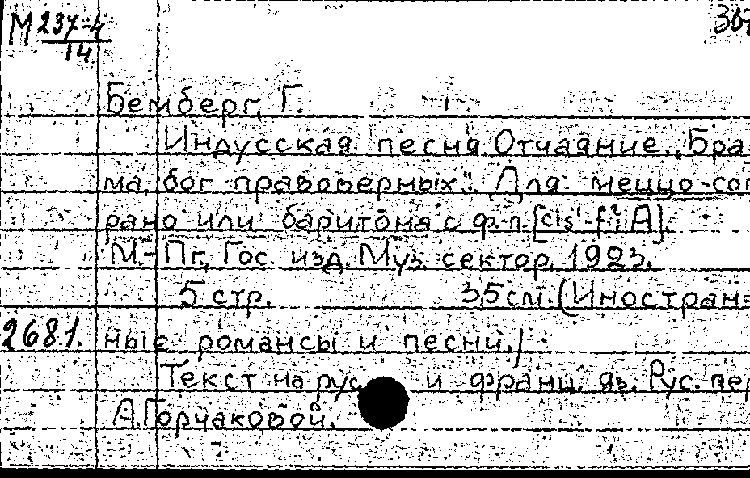 М 237-4
14
367
Бемберг, Г.
Индусская песня. Отчаяние. „Бра-
ма, бог правоверных". Для меццо-соп
рано или баритона с ф-п. [cis'-fi² A].
М.-Пг., Гос. изд. Муз. сектор, 1923.
5 стр. 35 см. (Иностран-
2681. ные романсы и песни.)
Текст на рус. и франц. яз. Рус. пер
А. Горчаковой.